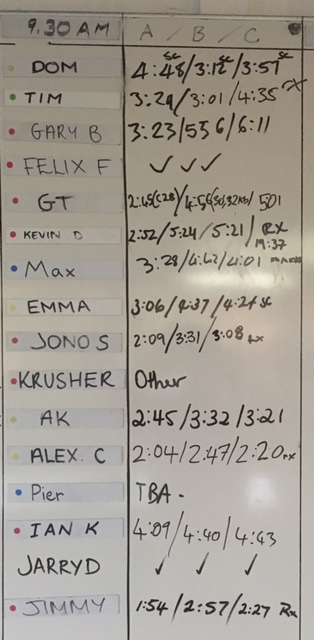 9.30 AM A / B / C
DOM 4:48 sc/3:12 sc/3:57 sc
TIM 3:29/3:01/4:35 rx
GARY B 3:23/556/6:11
FELIX F ✓ ✓ ✓
GT 2:45(28)/4:56 /501
KEVIN D 2:52/5:24/5:21/ Rx
19:37
Max 3:28/4:42/4:01
EMMA 3:06/4:37/4:24 sc
JONO S 2:09/3:31/3:08 rx
KRUSHER Other
AK 2:45/3:32/3:21
ALEX. C 2:04/2:47/2:20 rx
Pier TBA -
IAN K 4:09/4:40/4:43
JARRYD ✓ ✓ ✓
JIMMY 1:54/2:57/2:27 Rx